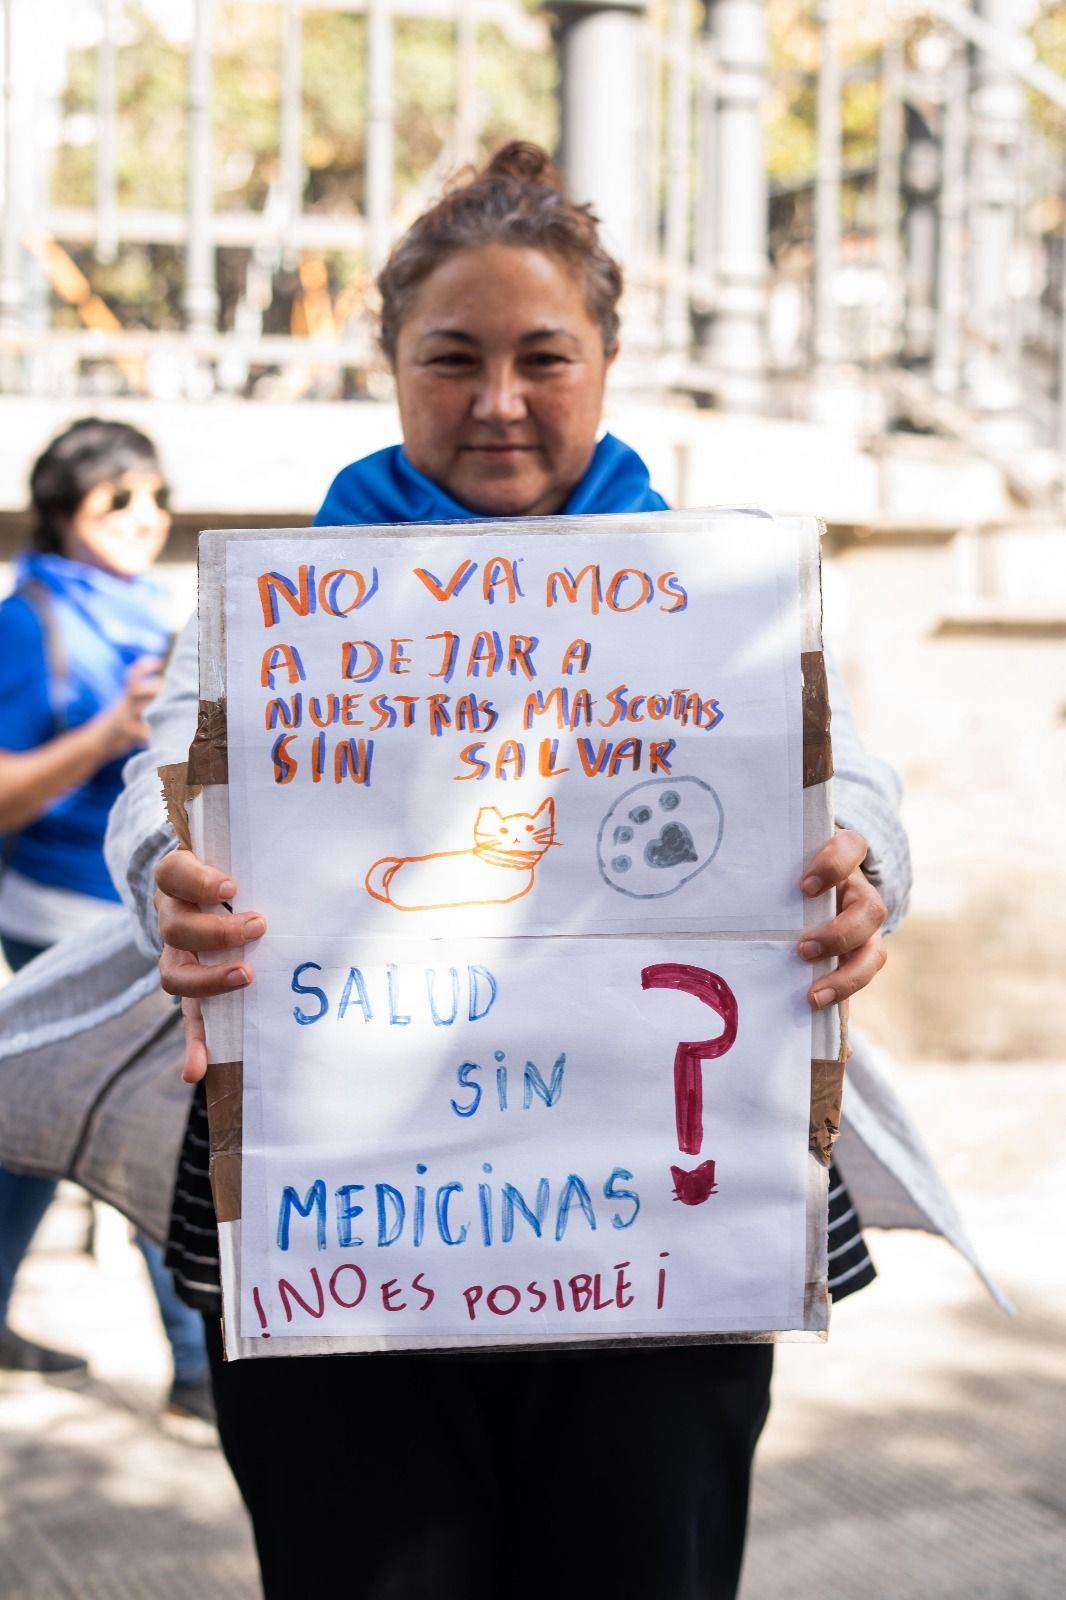 NO VAMOS
A DEJAR A
NUESTRAS MASCOTAS
SIN SALVAR
SALUD
SiN
MEDiCiNAS ?
!NO ES POSIBLE¡